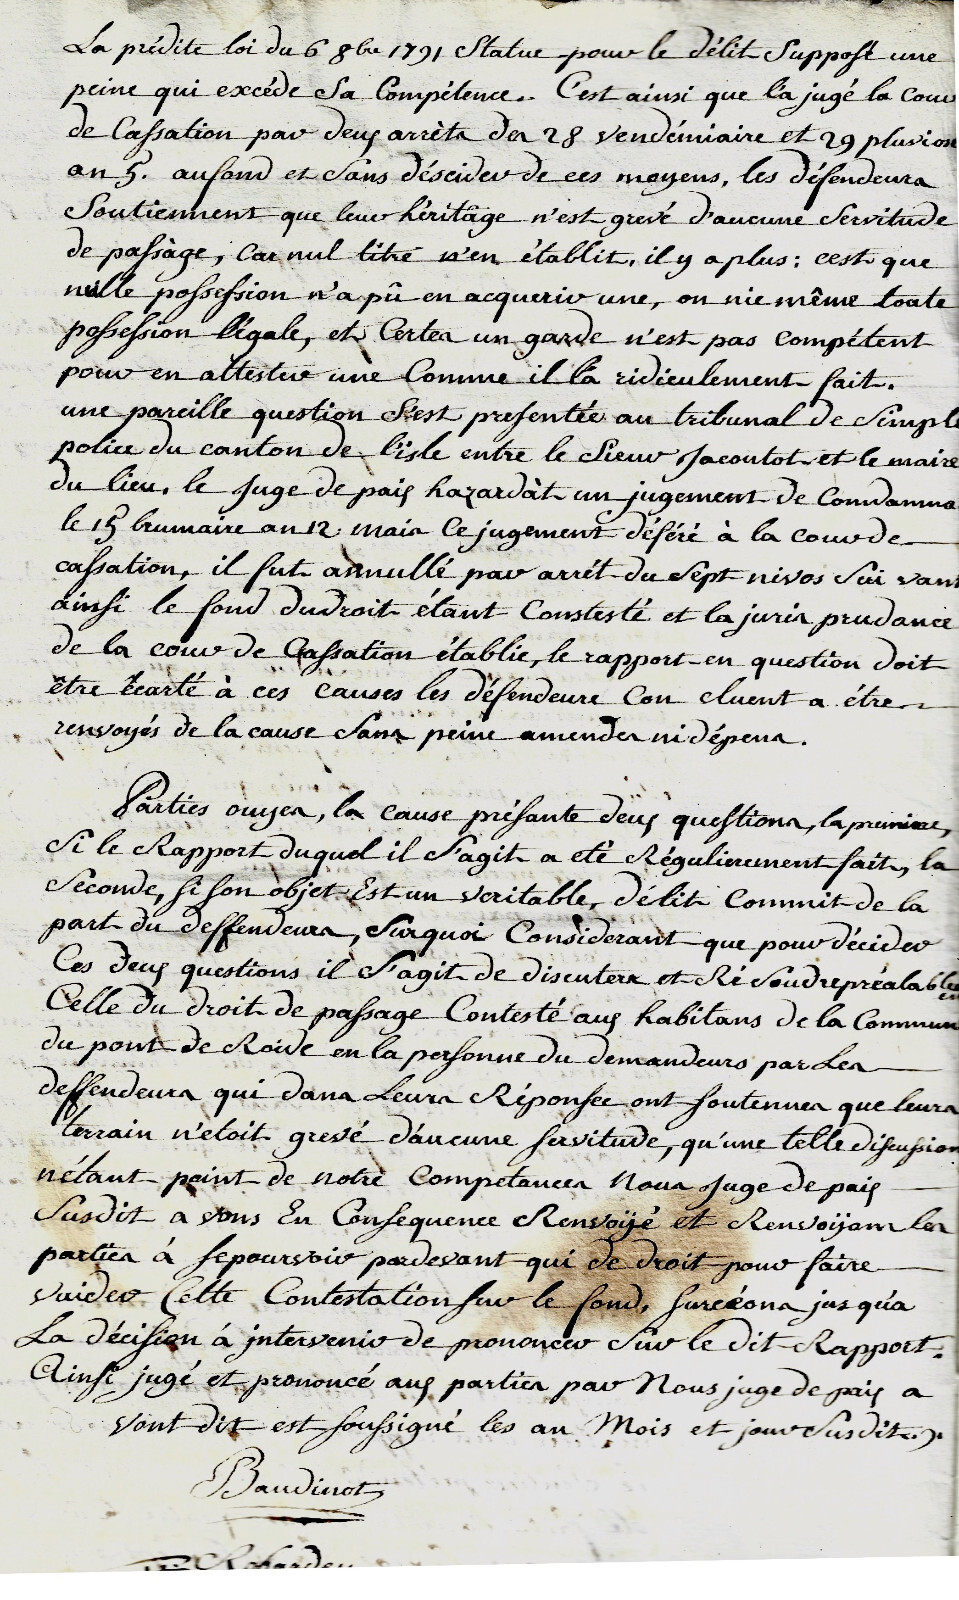 La prédite loi du 6 8bre 1791 Statue pour le délit Supposé une
peine qui excéde Sa Compétence. C'est ainsi que l'a jugé la Cour
de Cassation par deux arrèts des 28 vendémiaire et 29 pluviose
an 5. aufond et Sans déscider de ces moyens, les défendeurs
Soutiennent que leur héritâge n'est grevé d'aucune Servitude
de passàge, Car nul titre n'en établit, il y a plus: cest que
nulle possession n'a pû en acquerir une, on nie même toute
possession légale, et Certes un garde n'est pas compétent
pour en attester une Comme il l'a ridiculement fait.
une pareille question s'est presentée au tribunal de Simple
police du canton de l'isle entre le Sieur Jacoutot et le maire
du lieu. le Juge de paix hazardàt un jugement de Condamna
le 15 brumaire an 12 mais Ce jugement déféré à la cour de
cassation, il fut annullé par arrét du Sept nivos Sui vant
ainsi le fond dudroit étant Constesté et la juris prudance
de la cour de Cassation établie, le rapport en question doit
être écarté à ces causes les défendeurs Con cluent a étre
renvoyés de la cause Sans peine amendes ni dépens.
Parties ouyes, la cause présante deux questions, la premiere,
Si le Rapport duquel il S'agit a eté Régulierement fait, la
Seconde, si son objet Est un veritable, délit Commit de la
part du deffendeurs, Surquoi Considerant que pour décider
Ces deux questions il S'agit de discuters et Ré Soudre préalablement
Celle du droit de passage Contesté aux habitans de la Commun
du pont de Roide en la personne du demandeurs par Les
deffendeurs qui dans Leurs Réponsee ont soutennes que leurs
terrain n'etoit grevé d'aucune servitude, qu'une telle discussion
n'étant point de notre Competances Nous Juge de paix
Susdit a vons En Consequence Renvoÿé et Renvoijons les
parties á se pourvoir pardevant qui de droit pour faire
vuider Cette Contestation sur le fond, surcéons jusqu'a
La décision á intervenir de prononcer Sur le dit Rapport.
Ainsi jugé et prononcé aux parties par Nous juge de paix a
vont dit est soussigné les an Mois et jour Susdit.
Baudinot